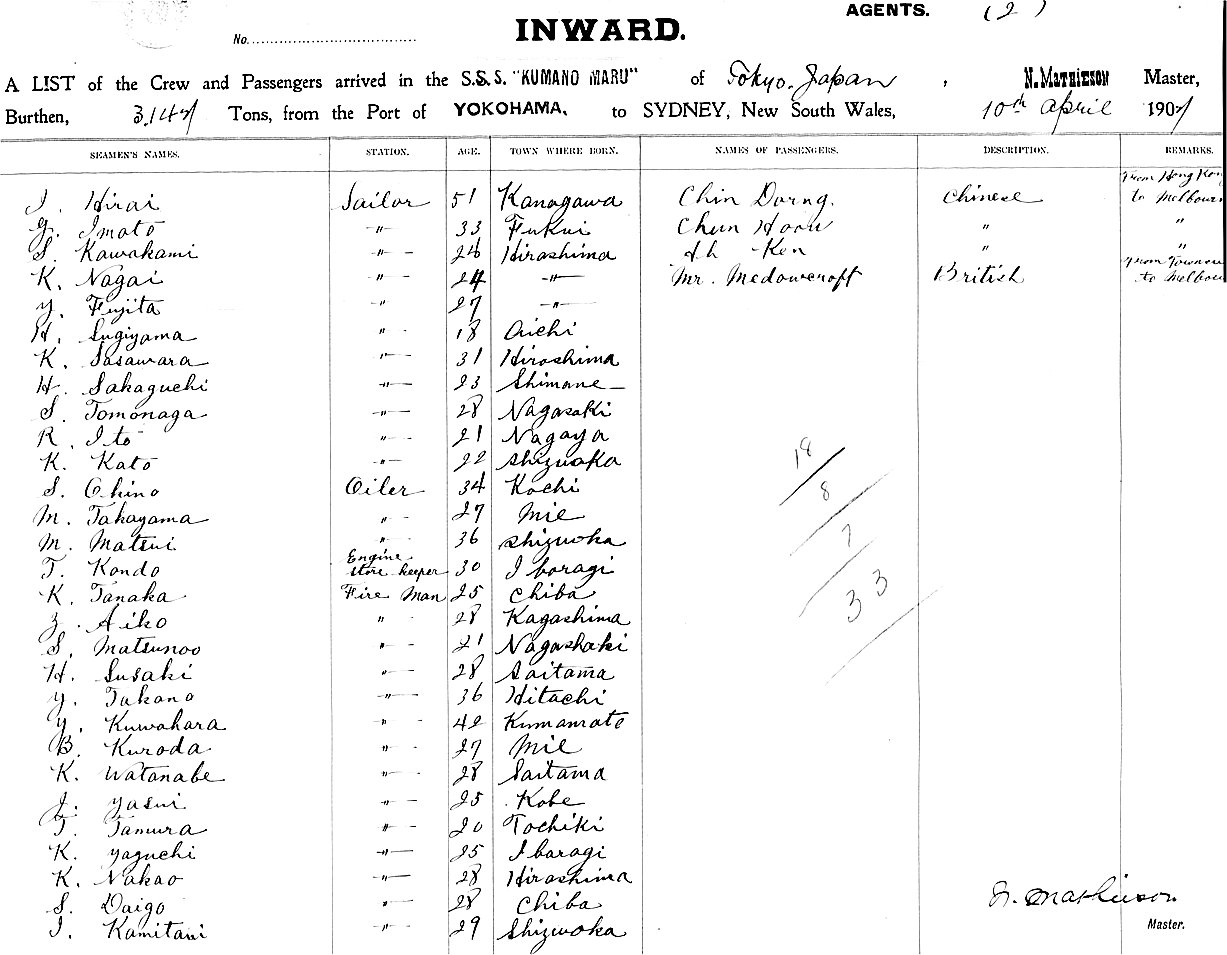 AGENTS. (2)
No. INWARD.
A LIST of the Crew and Passengers arrived in the S.S. S. "KUMANO MARU" of Tokyo. Japan, N. MATHIESON Master,
Burthen, 3,147 Tons, from the Port of YOKOHAMA. to SYDNEY, New South Wales, 10th April 1907
SEAMEN'S NAMES. STATION. AGE. TOWN WHERE BORN. NAMES OF PASSENGERS. DESCRIPTION. REMARKS.
From Hong Kon
Hirai Sailor 51 Kanagawa Chin Dorng. Chinese to Melbourn
G. Imoto " 33 Fukui Chun Hoou " "
S. Kawakami " 26 Hiroshima Ah Ken " "
From Townsv
K. Nagai " 24 " Mr. Medowcroft British to Melbour
Y. Fujita " 27 "
H. Sugiyama " 18 Aichi
K. Sasawara " 31 Hiroshima
H. Sakaguchi " 23 Shimane
S. Tomonaga " 28 Nagasaki
R. Ito " 21 Nagaya
K. Kato " 22 Shizuoka
S. Chino Oiler 34 Kochi
M. Takayama " 27 Mie
M. Matsui " 36 Shizuoka
T. Kondo Engine store keeper 30 Iboragi
K. Tanaka Fire Man 25 Chiba
Z. Aiko " 28 Kagashima
S. Matsunoo " 21 Nagashaki
H. Susaki " 28 Saitama
Y. Takano " 36 Hitachi
Y. Kuwahara " 42 Kumamoto
B. Kuroda " 27 Mie
K. Watanabe " 28 Saitama
Yasui " 25 Kobe
T. Tamura " 20 Tochiki
K. Yaguchi " 25 Ibaragi
K. Nakao " 28 Hiroshima
S. Daigo " 28 Chiba
Kamitani " 29 Shizuoka
18
8
7
33
N. Mathieson
Master.